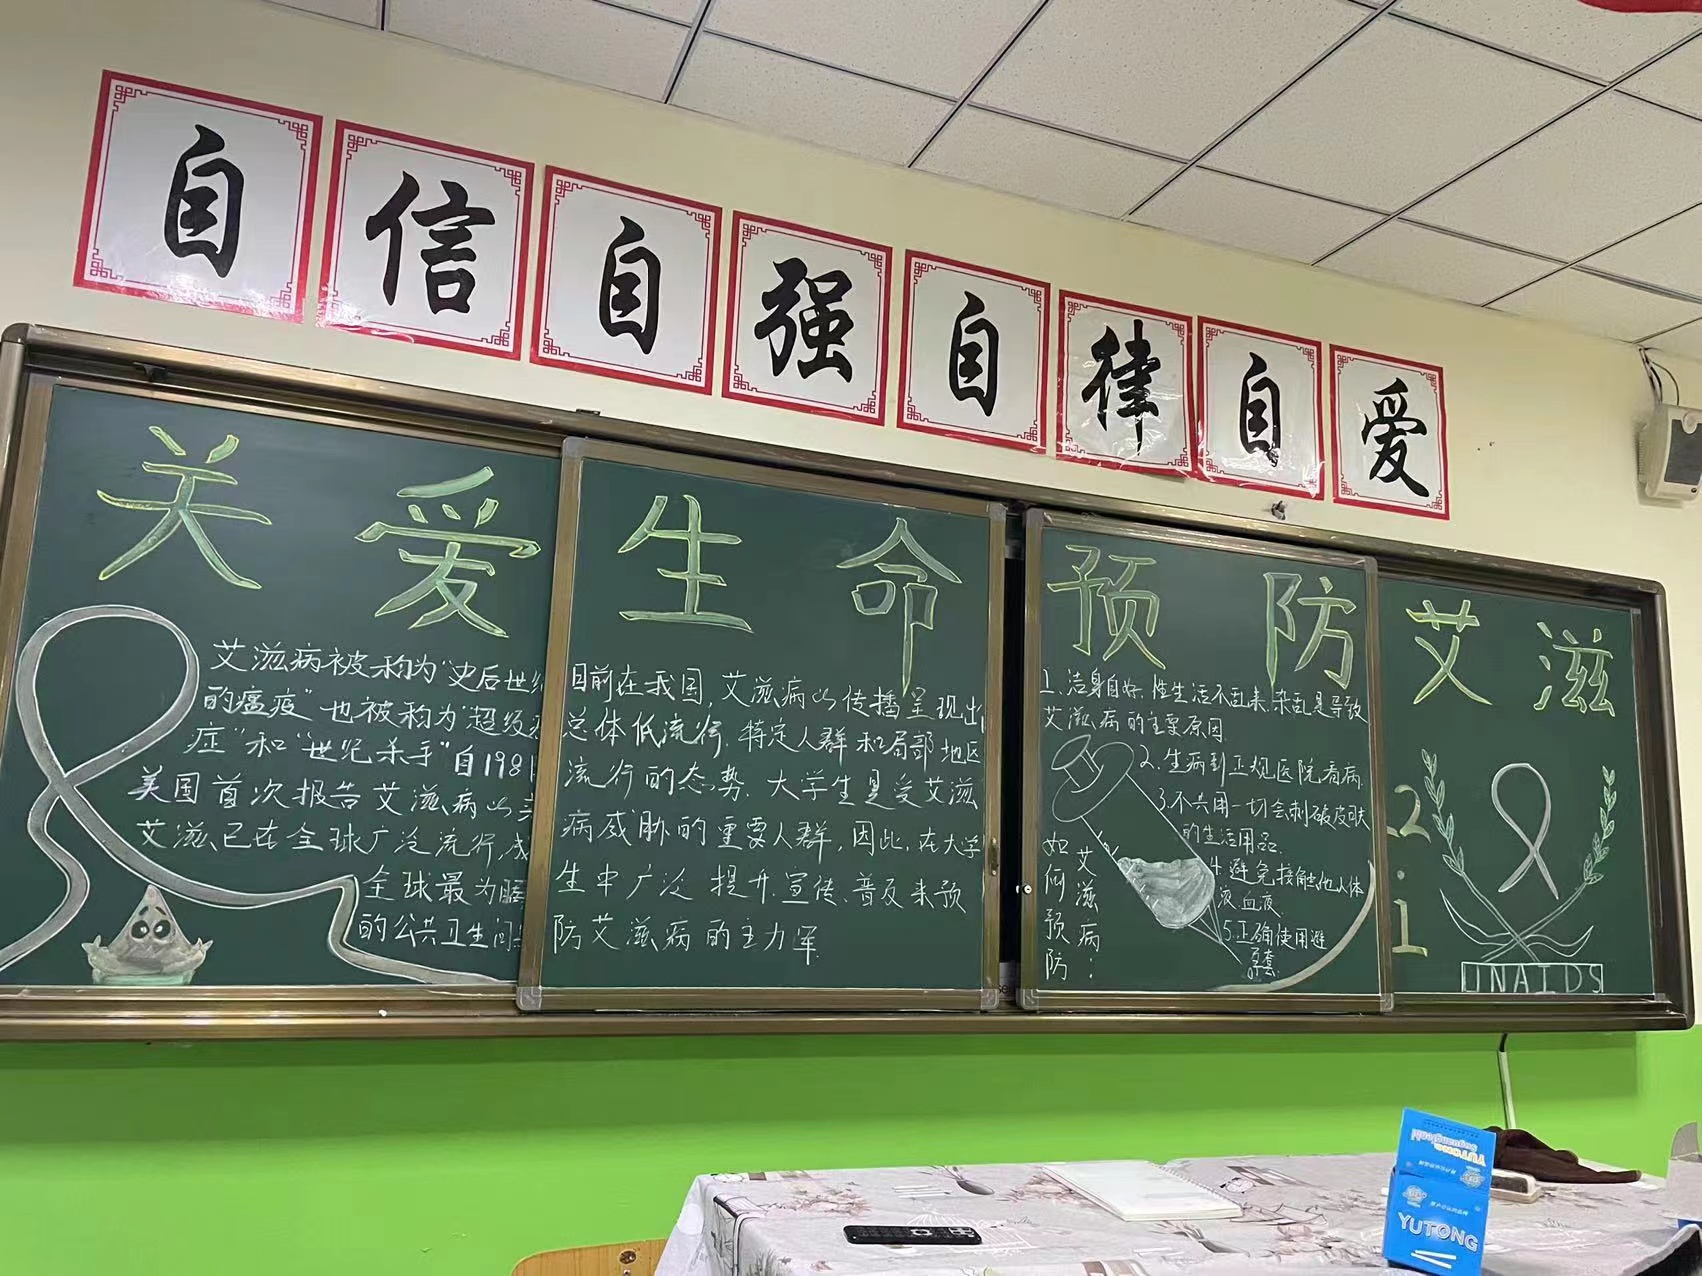 自信自强自律自爱
关爱生命预防艾滋
艾滋病被称为"史后世
的瘟疫"也被称为"超级
症"和"世纪杀手"自1981
美国首次报告艾滋病以
艾滋已在全球广泛流行,成
全球最为
的公共卫生问
目前在我国,艾滋病以传播呈现出
总体低流行,特定人群和局部地区
流行的态势,大学生是受艾滋
病威胁的重要人群,因此,在大学
生中广泛提升、宣传、普及来预
防艾滋病的主力军
1、洁身自好,性生活不乱来,杂乱是导致
艾滋病的主要原因
2.生病到正规医院看病
3.不共用一切会刺破皮肤
的生活用品.
4.避免接触他人体
液、血液.
5.正确使用避
孕套.
如何预防
艾滋病:
12.1
UNAIDS
YUTONG
YUTONG